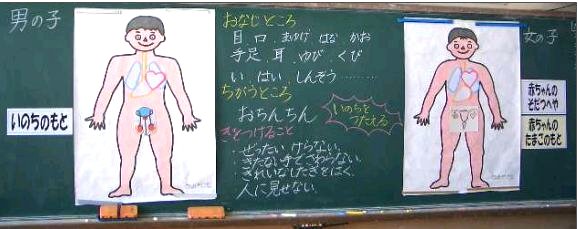 男の子
いのちのもと
おなじところ
目 口 まゆげ はな かお
手足 耳 ゆび くび
い はい しんぞう………
ちがうところ
おちんちん
いのちを
つたえる
きをつけること
・ぜったい けらない
・きたない手でさわらない
・きれいなしたぎをはく
・人に見せない
女の子
赤ちゃんの
そだつへや
赤ちゃんの
たまごのもと